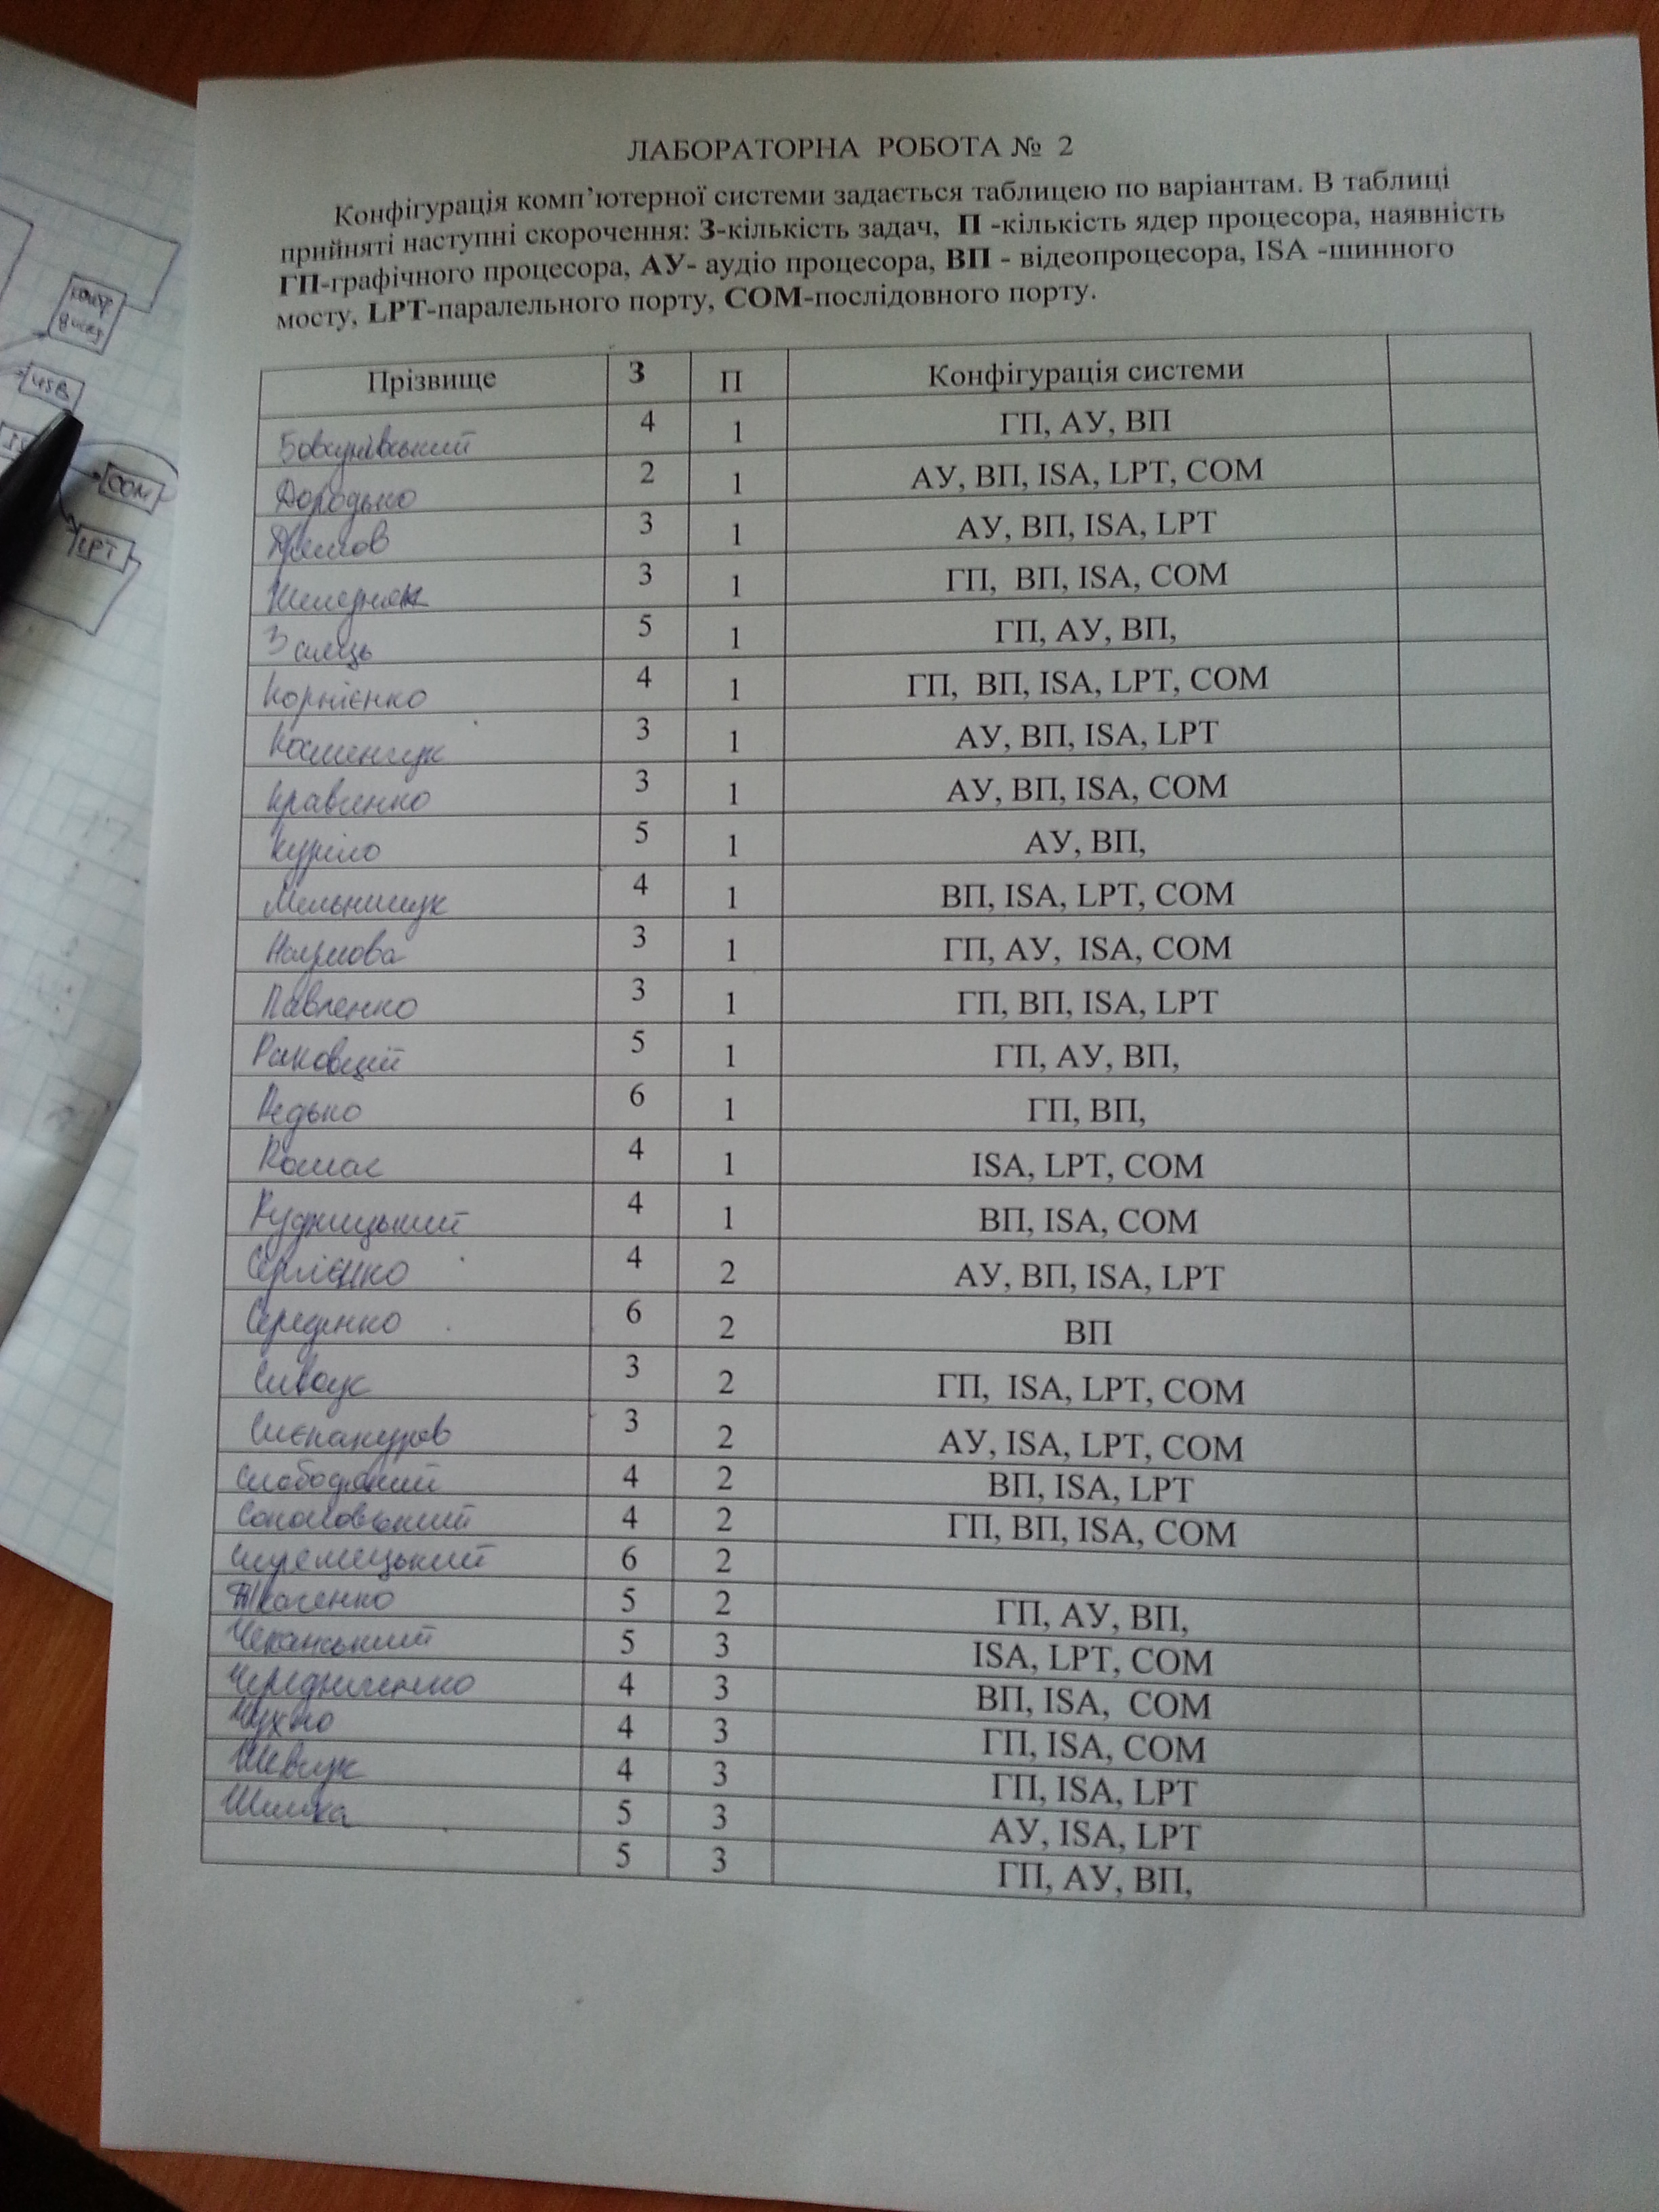 ЛАБОРАТОРНА РОБОТА № 2
Конфігурація комп’ютерної системи задається таблицею по варіантам. В таблиці
прийняті наступні скорочення: З-кількість задач, П -кількість ядер процесора, наявність
ГП-графічного процесора, АУ- аудіо процесора, ВП - відеопроцесора, ISA -шинного
мосту, LPT-паралельного порту, COM-послідовного порту.
Прізвище З П Конфігурація системи
4 1 ГП, АУ, ВП
Дородько 2 1 АУ, ВП, ISA, LPT, COM
3 1 АУ, ВП, ISA, LPT
3 1 ГП, ВП, ISA, COM
Заєць 5 1 ГП, АУ, ВП,
Корнієнко 4 1 ГП, ВП, ISA, LPT, COM
3 1 АУ, ВП, ISA, LPT
Кравченко 3 1 АУ, ВП, ISA, COM
Куріло 5 1 АУ, ВП,
Мельничук 4 1 ВП, ISA, LPT, COM
Наумова 3 1 ГП, АУ, ISA, COM
Павленко 3 1 ГП, ВП, ISA, LPT
5 1 ГП, АУ, ВП,
Редько 6 1 ГП, ВП,
4 1 ISA, LPT, COM
Рудницький 4 1 ВП, ISA, COM
Сергієнко 4 2 АУ, ВП, ISA, LPT
Середенко 6 2 ВП
3 2 ГП, ISA, LPT, COM
3 2 АУ, ISA, LPT, COM
4 2 ВП, ISA, LPT
Соколовський 4 2 ГП, ВП, ISA, COM
6 2
Ткаченко 5 2 ГП, АУ, ВП,
Чеканський 5 3 ISA, LPT, COM
Чередниченко 4 3 ВП, ISA, COM
Чухно 4 3 ГП, ISA, COM
Шевчук 4 3 ГП, ISA, LPT
5 3 АУ, ISA, LPT
5 3 ГП, АУ, ВП,
USB
COM
LPT